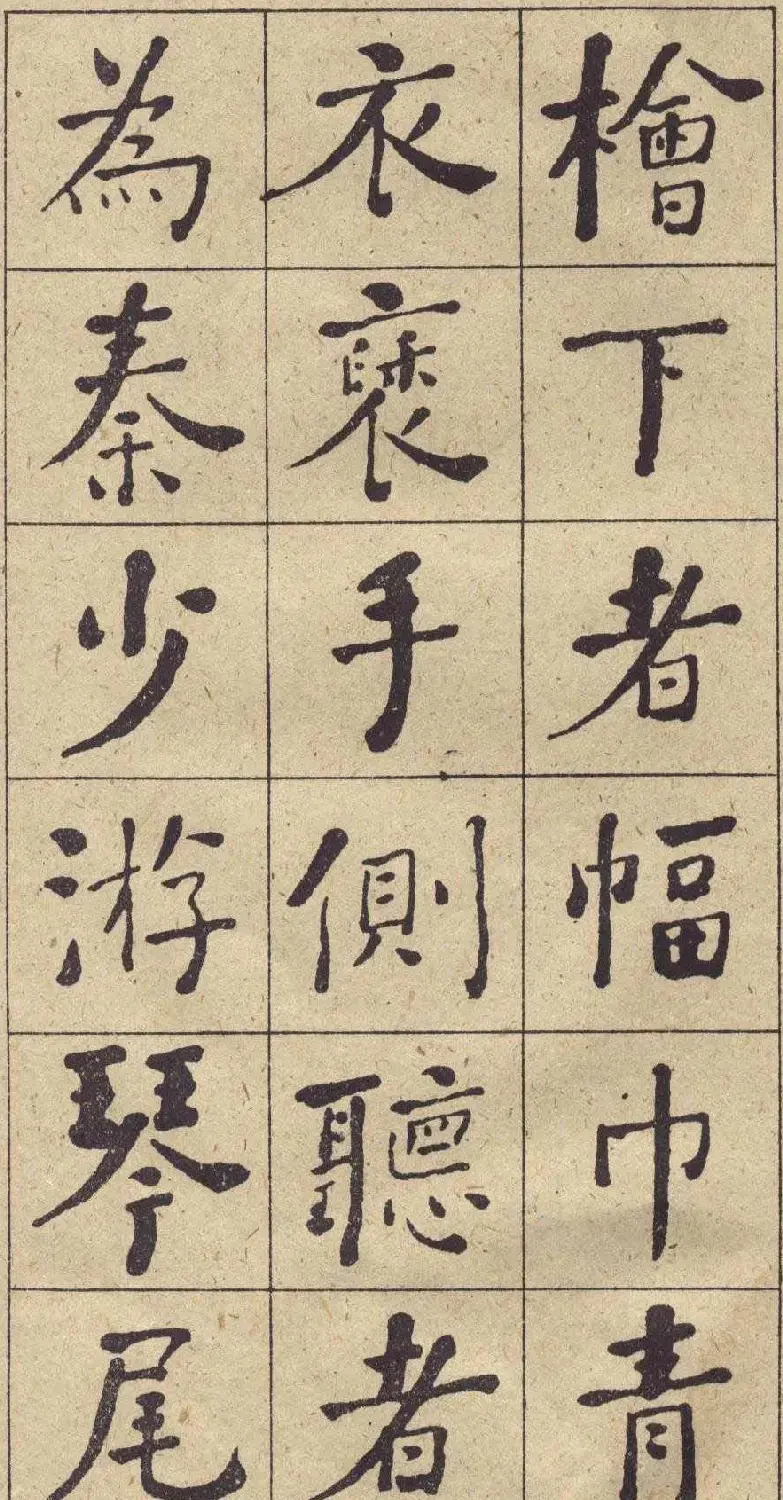 檜下者幅巾青
衣褏手側聽者
為秦少游琴尾